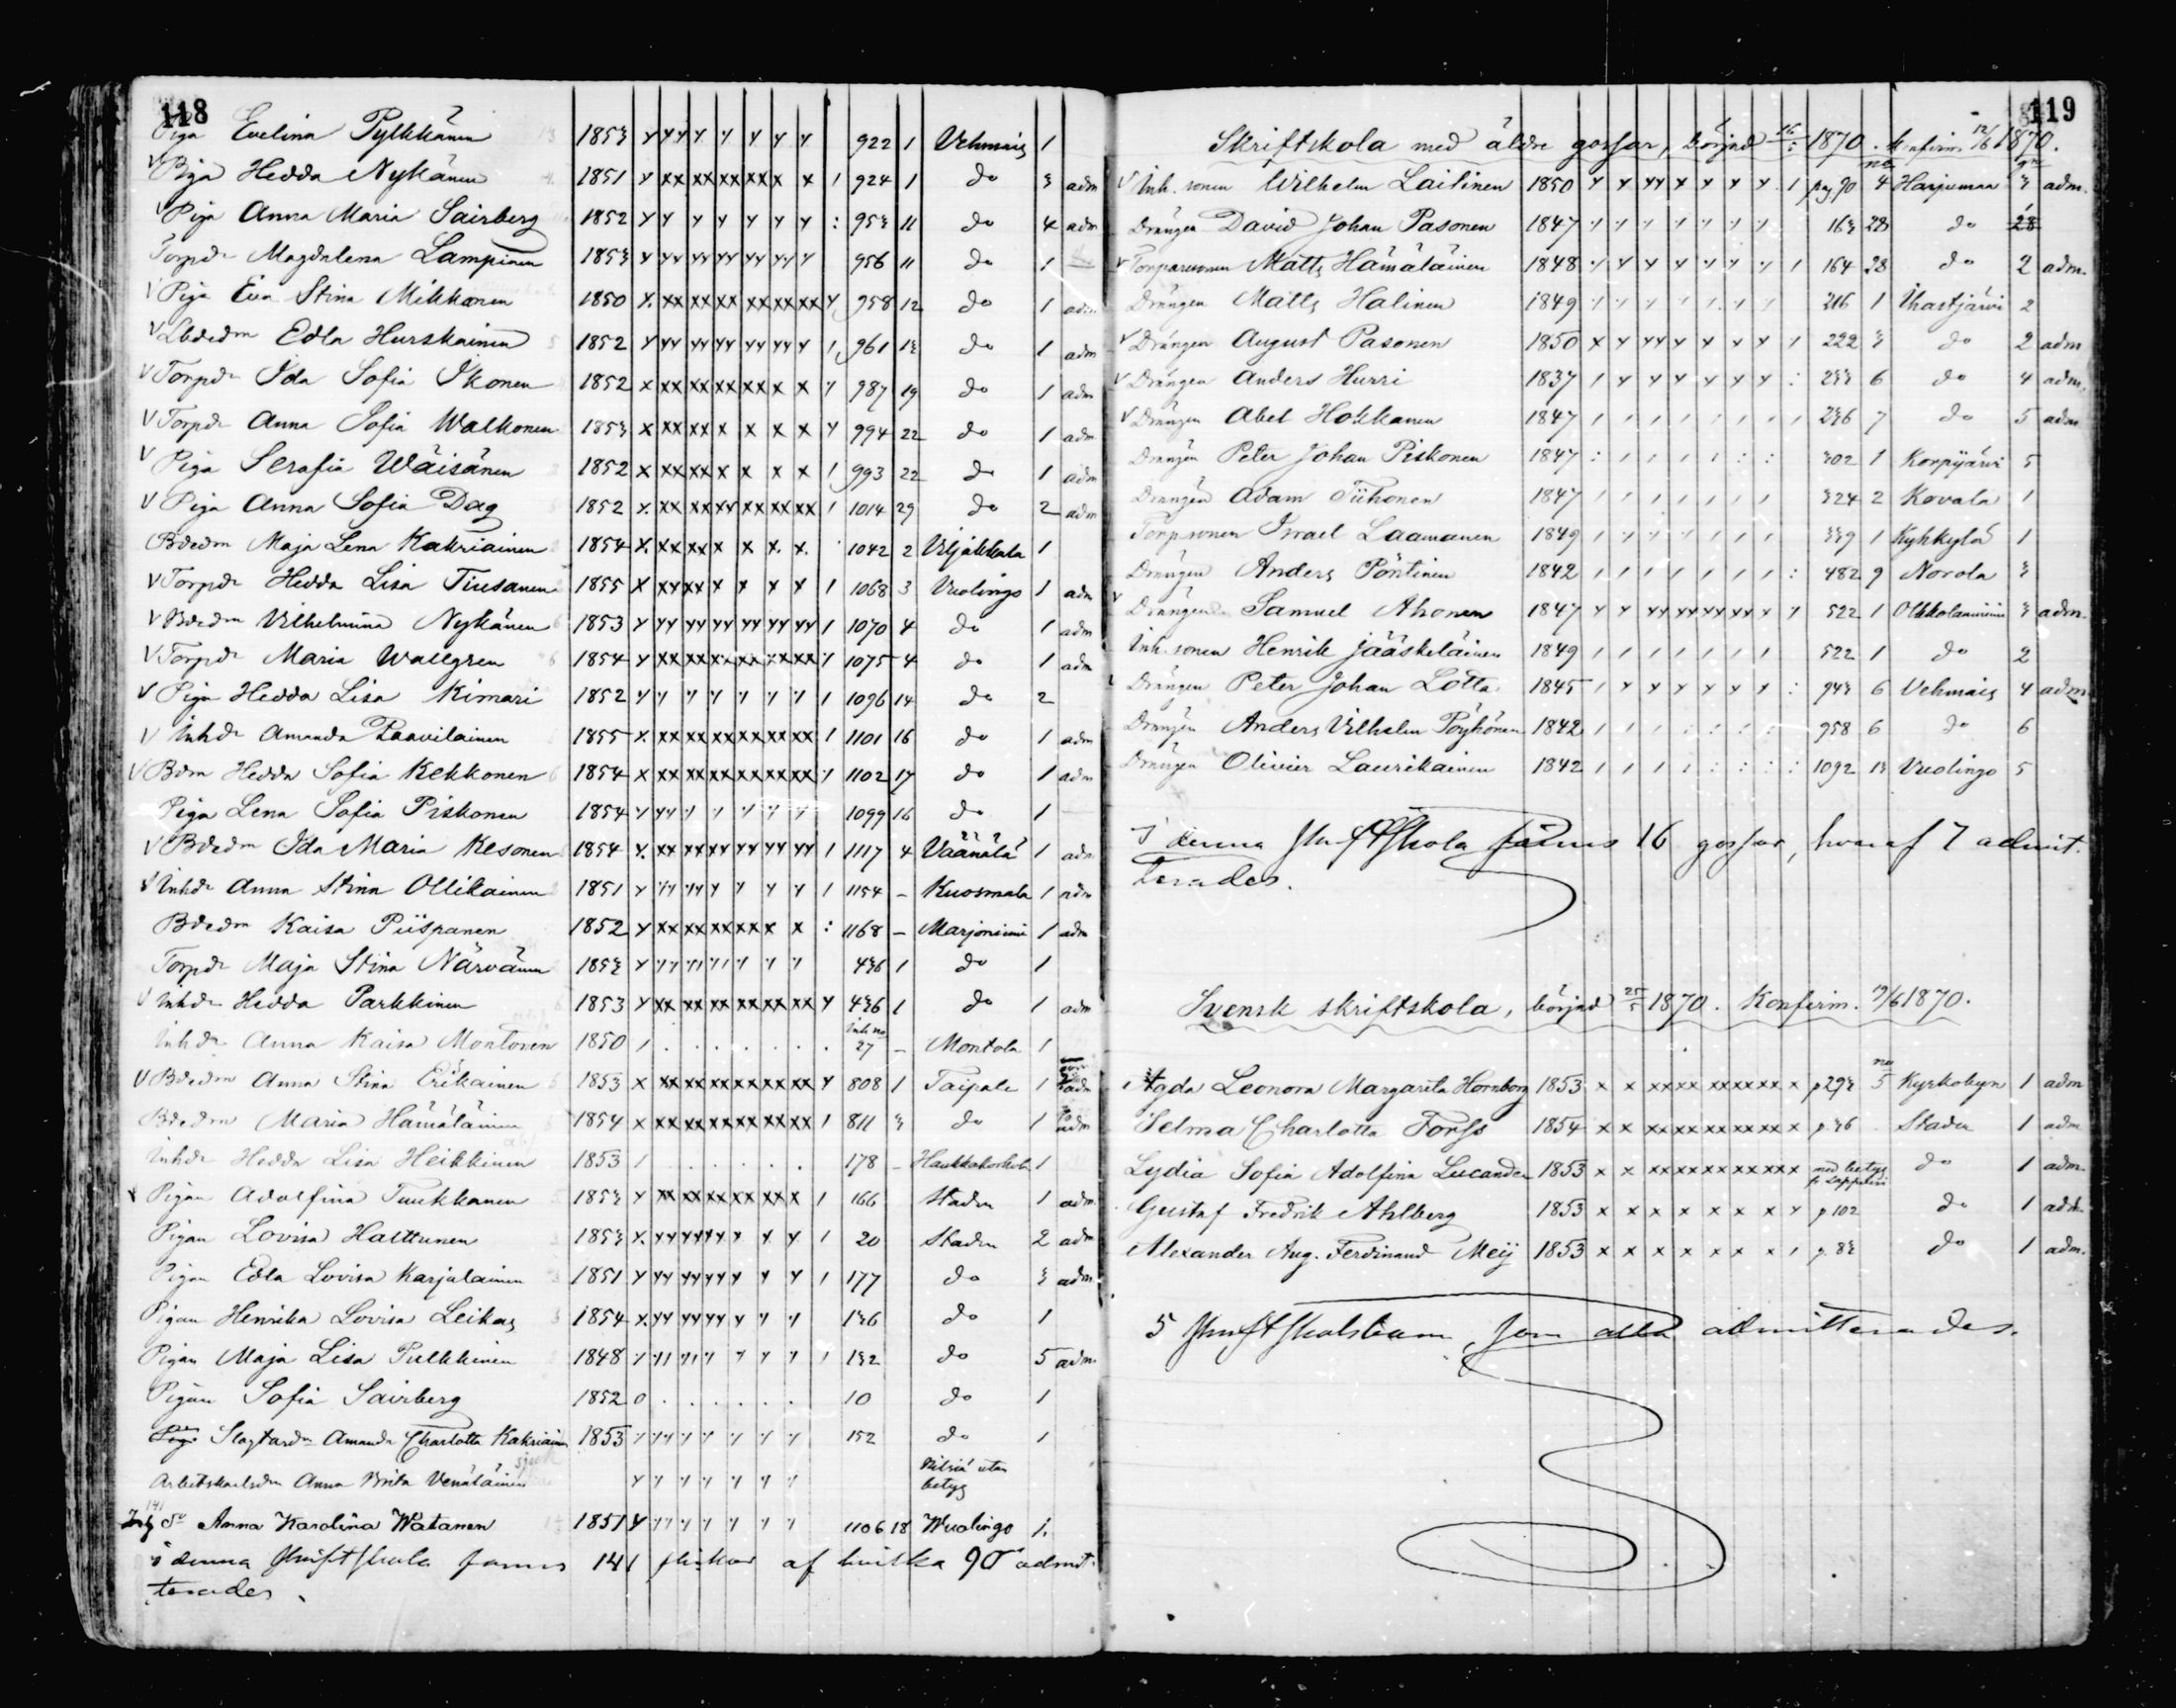 118
Piga Evelina Pylkkänen 1853 y y y y y y y y 922 1 Vehmais 1
V Piga Hedda Nykänen 1851 y xx xx xx xx x x 1 924 1 do 3 adm
V Piga Anna Maria Sairberg 1852 y y y y y y y : 953 11 do 4 adm
Torpdr Magdalena Lampinen 1853 y yy yy yy yy y 956 11 do 1
V Piga Eva Stina Mikkonen 1850 x xx xx xx xx xx y 958 12 do 1 adm
V Lbdedm Edla Hurskainen 1852 y yy yy yy yy y 1 961 13 do 1 adm
V Torpdr Ida Sofia Ikonen 1852 x xx xx xx xx x y 987 19 do 1 adm
V Torpdr Anna Sofia Walkonen 1853 x xx xx x x x x y 994 22 do 1 adm
V Piga Serafia Wäisänen 1852 x xx xx x x x x 1 993 22 do 1 adm
V Piga Anna Sofia Dag 1852 x xx xx xx xx xx 1 1014 29 do 2 adm
Bdedm Maja Lena Kakriainen 1854 x xx xx x x x x 1042 2 Viljakkala 1
V Torpdr Hedda Lisa Tiusanen 1855 x xy xx x x x x 1 1068 3 Vuolingo 1 adm
V Bdedm Vilhelmina Nykänen 1853 y yy yy yy yy yy 1 1070 4 do 1 adm
V Torpdr Maria Wallgren 1854 y xx xx xx xx xx y 1075 4 do 1 adm
V Piga Hedda Lisa Kimari 1852 y y y y y y y 1 1096 14 do 2
V Inhdr Amanda Paavilainen 1855 x xx xx xx xx xx 1 1101 16 do 1 adm
V Bdm Hedda Sofia Kekkonen 1854 x xx xx xx xx xx y 1102 17 do 1 adm
Piga Lena Sofia Piskonen 1854 y yy y y y y y 1099 16 do 1
V Bdedm Ida Maria Kesonen 1854 y xx xx yy yy yy 1 1117 4 Väänälä 1 adm
V Inhdr Anna Stina Ollikainen 1851 y yy yy y y y y 1 1154 – Kuosmala 1 adm
Bdedm Kaisa Piispanen 1852 y xx xx xx xx x : 1168 – Marjoniemi 1 adm
Torpdr Maja Stina Närvänen 1853 y yy yy yy y y y 436 1 do 1
V Inhdr Hedda Parkkinen 1853 y xx xx xx xx xx y 436 1 do 1 adm
Inhdr Anna Kaisa Montonen 1850 1 . . . . . . . Inh no 27 – Montola 1
V Bdedm Anna Stina Erikainen 1853 x xx xx xx xx xx y 808 1 Taipale 1 adm
Bdedm Maria Hämäläinen 1854 x xx xx xx xx xx 1 811 3 do 1 adm
Inhdr Hedda Lisa Heikkinen 1853 1 . . . . . . 178 – Haukkakoskola 1
V Pigan Adolfina Tuukkanen 1853 y xx xx xx xx x 1 166 Staden 1 adm
Pigan Lovisa Harttunen 1853 x yy yy yy y y 1 20 Staden 2 adm
Pigan Edla Lovisa Karjalainen 1851 y yy yy yy y y 1 177 do 3 adm
Pigan Henrika Lovisa Leikas 1854 x yy yy yy y y 136 do 1
Pigan Maja Lisa Pulkkinen 1848 y yy yy y y y 1 132 do 5 adm
Pigan Sofia Sairberg 1852 0 . . . . . . 10 do 1
Slagtardr Amanda Charlotta Kakriainen 1853 y yy y y y y y 152 do 1
sjuk
Arbetskarlsdm Anna Brita Venäläinen y y y y y y y utan betyg
141 do Anna Karolina Watanen 1851 y yy y y y y y 1106 18 Wuolingo 1.
i denna skriftskola fanns 141 flickor af hvilka 90 admit-
terades.
119
Skriftskola med äldre gossar, börjad 16/5 1870. konfirm. 12/6 1870.
V Inh. sonen Wilhelm Laitinen 1850 y y yy y y y y 1 pag. 90 no 4 Harjumaa 3 adm.
Drängen David Johan Pasonen 1847 y y y y y y y 163 28 do 28
V Torparesonen Matts Hämäläinen 1848 y y y y y y y 1 164 28 do 2 adm.
Drängen Matts Halinen 1849 y y y y y y y 216 1 Ihastjärvi 2
V Drängen August Pasonen 1850 x y yy y y y y 1 222 3 do 2 adm
V Drängen Anders Hurri 1837 1 y y y y y y : 233 6 do 4 adm.
V Drängen Abel Hokkanen 1847 1 1 1 1 1 1 1 1 236 7 do 5 adm
Drängen Peter Johan Piskonen 1847 : 1 1 1 1 : : 302 1 Korpijärvi 5
Drängen Adam Tiihonen 1847 1 1 1 1 1 1 1 324 2 Kovala 1
Torpsonen Israel Laamanen 1849 1 y y y 1 1 1 339 1 Kyhkylä 1
Drängen Anders Pöntinen 1842 1 1 1 1 1 1 1 : 482 9 Norola 3
V Drängen Samuel Ahonen 1847 y y yy yy yy yy y y 522 1 Olkkolanniemi 3 adm.
Inh. sonen Henrik Jääskeläinen 1849 1 1 1 1 1 1 1 522 1 do 2
Drängen Peter Johan Lötta 1845 1 y y y y y y : 943 6 Vehmais 4 adm
Drängen Anders Vilhelm Pöyhönen 1842 1 1 1 : : : : 958 6 do 6
Drängen Olivier Laurikainen 1842 1 1 1 : : : : : 1092 13 Vuolingo 5
I denna skriftskola fanns 16 gossar, hvaraf 7 admit-
terades.
Svensk skriftskola, börjad 25/5 1870. Konfirm. 19/6 1870.
Agda Leonora Margarita Hornborg 1853 x x xx xx xx xx xx x p 293 no 5 Kyrkobyn 1 adm
Selma Charlotta Forss 1854 x x xx xx xx xx x x p. 36 Staden 1 adm
Lydia Sofia Adolfina Lucander 1853 x x xx xx xx xx xx med betyg fr. do 1 adm
Gustaf Fredrik Ahlberg 1853 x x x x x x x y p 102 do 1 adm
Alexander Aug. Ferdinand Meij 1853 x x x x x x x 1 p. 83 do 1 adm.
5 skriftskolebarn, som alla admitterades.